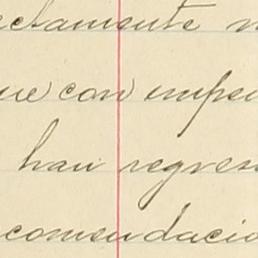 ectamente
ue con empe
han regres
comendacio